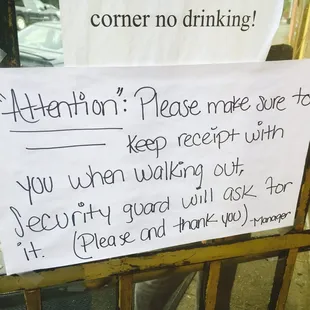 corner no drinking!
"Attention": Please make sure to
Keep receipt with
you when walking out,
Security guard will ask for
it. (Please and thank you) -Manager